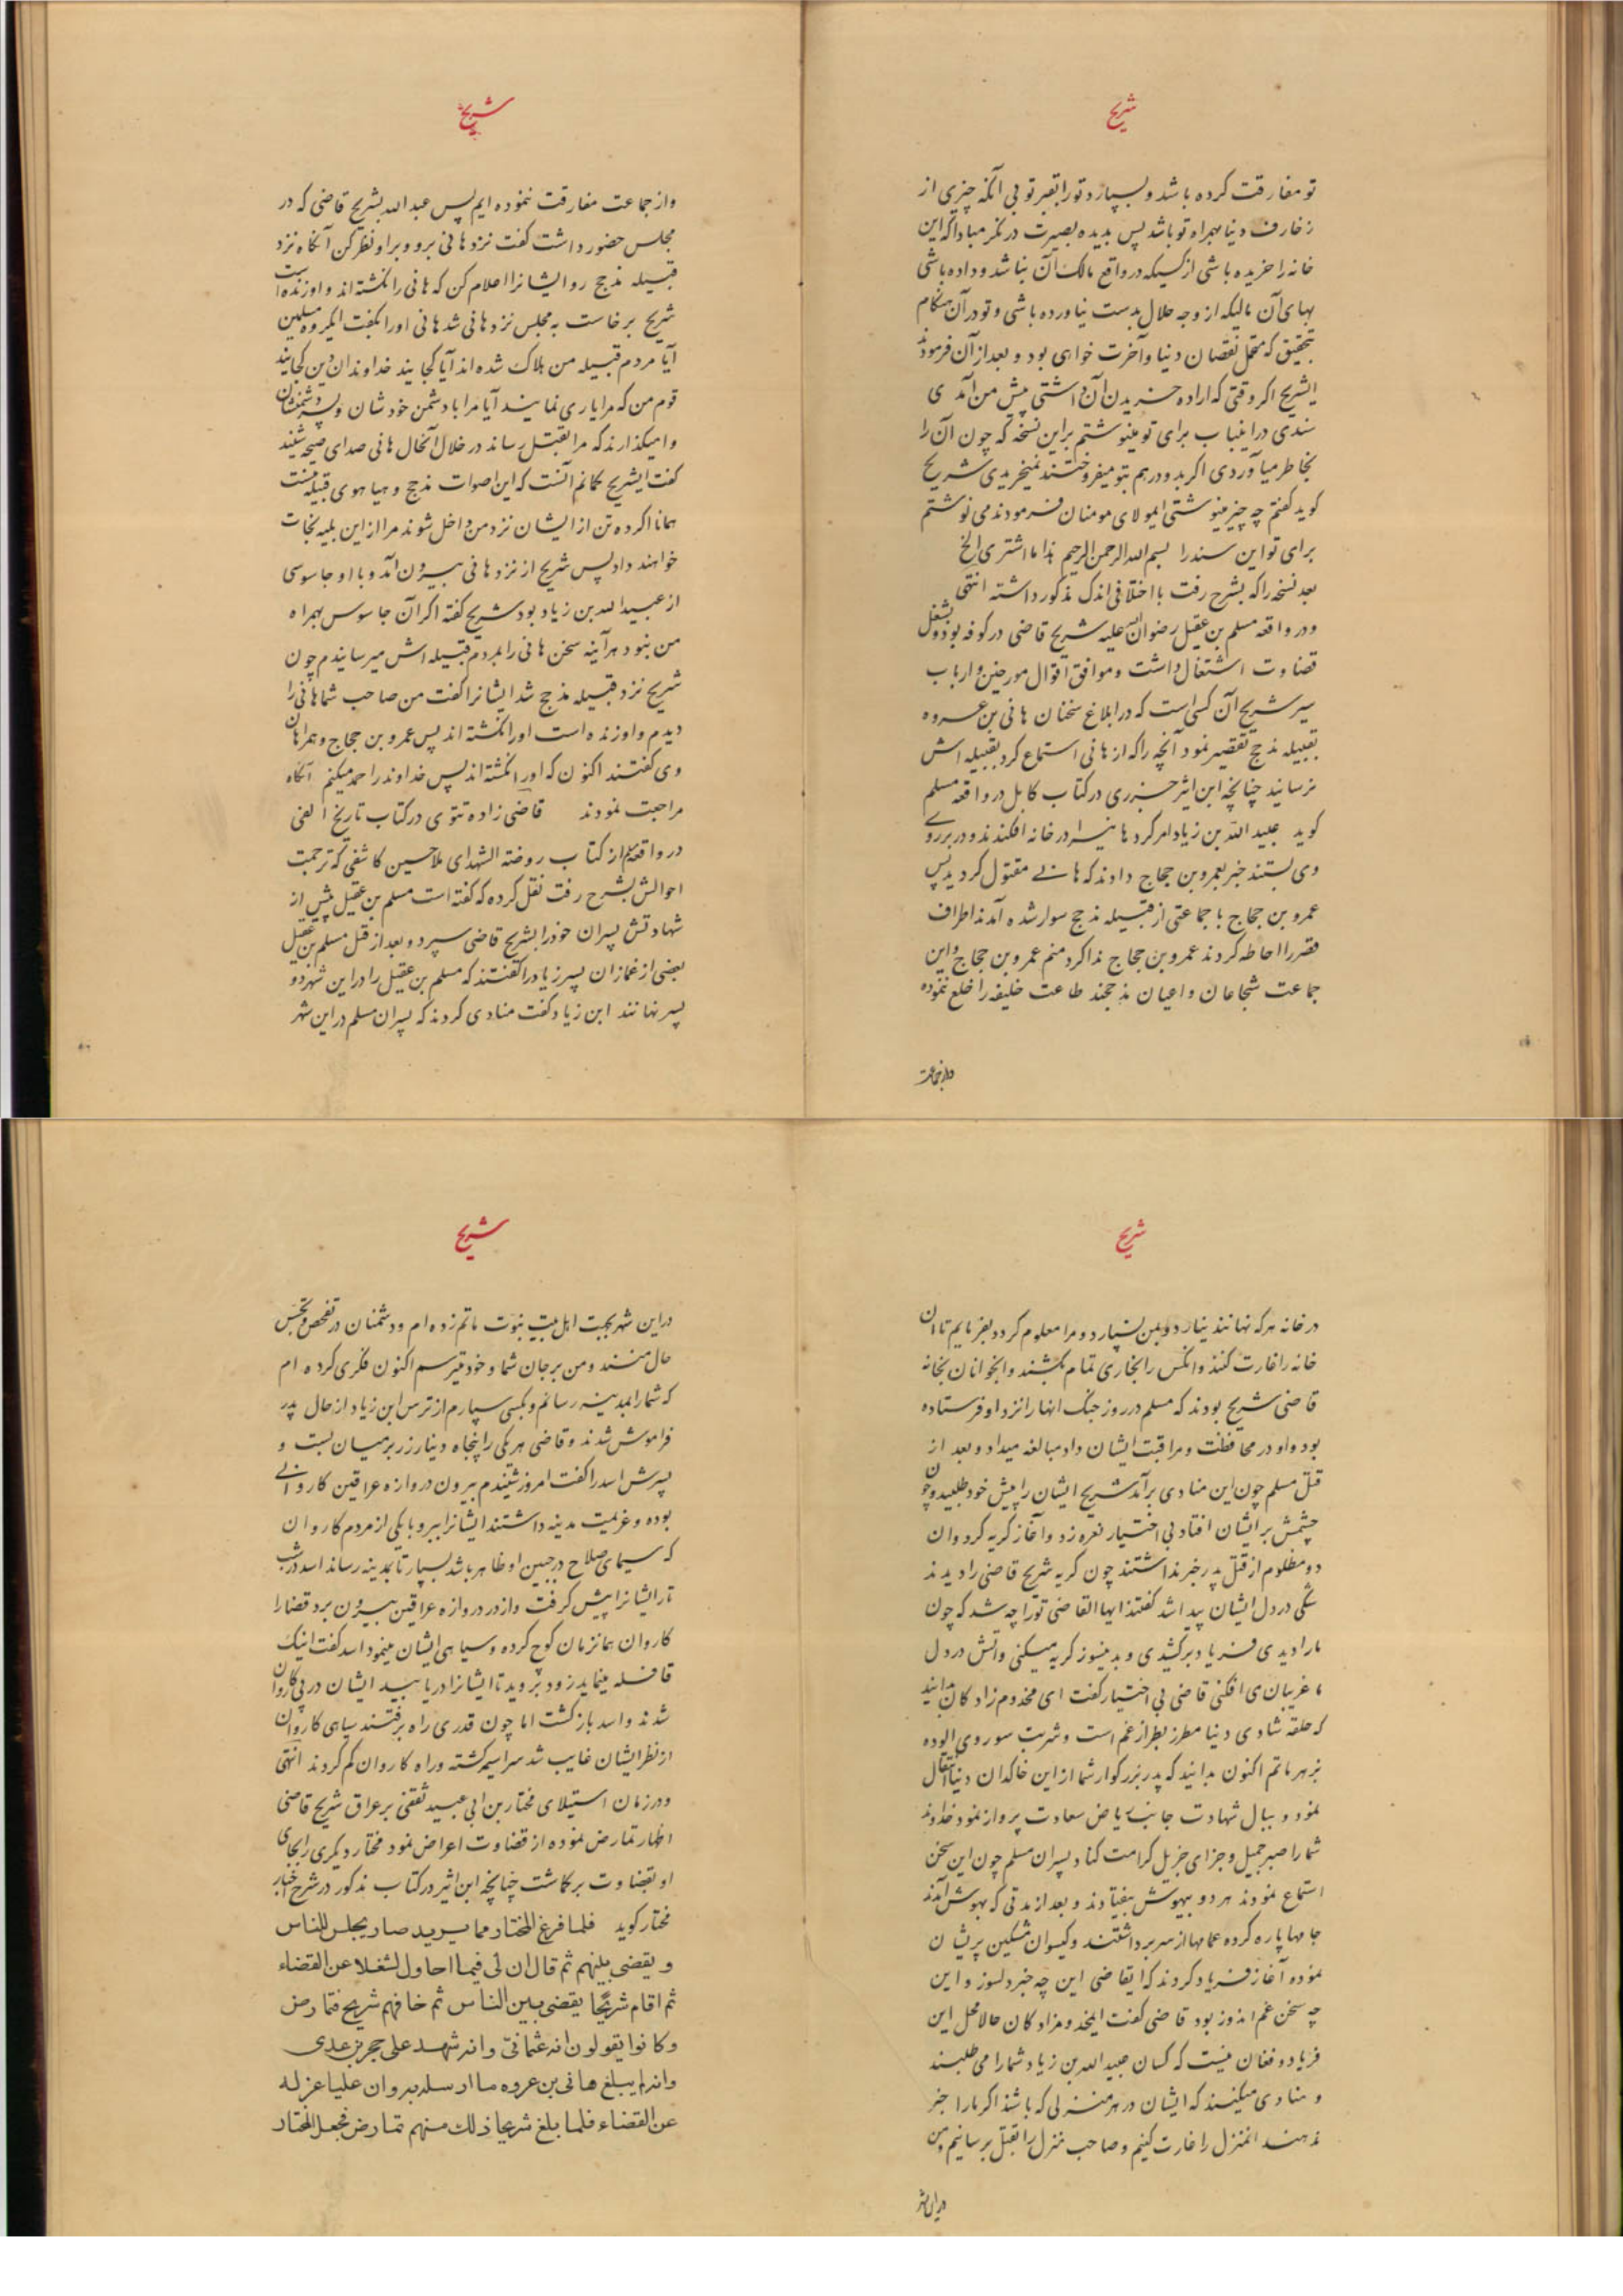 شریح
تو مفارقت کرده باشد و بسپارد تو را بقبر تو بی آنکه چیزی از
زخارف دنیا بهمراه تو باشد پس بدیده بصیرت در نگر مبادا که این
خانه را خریده باشی از کسیکه در واقع مالک آن نباشد و داده باشی
بهای آن مالیکه از وجه حلال بدست نیاورده باشی و تو در آن هنگام
بتحقیق که متحمل نقصان دنیا و آخرت خواهی بود و بعد از آن فرمودند
ایشریح اگر وقتی که اراده خریدن آن داشتی پیش من آمدی
سندی در اینباب برای تو مینوشتم براین نسخه که چون آن را
بخاطر میاوردی اگر بدو درهم بتو میفروختند نمیخریدی شریح
گوید گفتم چه چیز مینوشتی ایمولای مومنان فرمودند می نوشتم
برای تو این سند را بسم الله الرحمن الرحیم هذا ما اشتری الخ
بعد نسخه را که بشرح رفت با اختلافی اندک مذکور داشته انتهی
و در واقعه مسلم بن عقیل رضوان الله علیه شریح قاضی در کوفه بود و بشغل
قضاوت اشتغال داشت و موافق اقوال مورخین و ارباب
سیر شریح آن کسی است که در ابلاغ سخنان هانی بن عروه
بقبیله مذحج تقصیر نمود آنچه را که از هانی استماع کرد بقبیله اش
نرسانید چنانچه ابن اثیر جزری در کتاب کامل در واقعه مسلم
گوید عبید الله بن زیاد امر کرد هانیرا در خانه افکندند و در برروی
وی بستند خبر بعمرو بن حجاج دادند که هانی مقتول گردید پس
عمرو بن حجاج با جماعتی از قبیله مذحج سوار شده آمدند اطراف
قصر را احاطه کردند عمرو بن حجاج ندا کرد منم عمرو بن حجاج و این
جماعت شجاعان و اعیان مذحجند طاعت خلیفه را خلع ننموده
و از جماعت
شریح
و از جماعت مفارقت ننموده ایم پس عبد الله بشریح قاضی که در
مجلس حضور داشت گفت نزد هانی برو و براو نظر کن آنگاه نزد
قبیله مذحج رو ایشانرا اعلام کن که هانی را نکشته اند و او زنده است
شریح برخاست به مجلس نزد هانی شد هانی او را بگفت ایگروه مسلمین
آیا مردم قبیله من هلاک شده اند آیا کجایند خداوندان دین کجایند
قوم من که مرا یاری نمایند آیا مرا با دشمن خودشان و پسر دشمنشان
وامیگذارند که مرا بقتل رساند در خلال آنحال هانی صدای صیحه شنید
گفت ایشریح گمانم آنست که این اصوات مذحج و هیاهوی قبیله منست
همانا اگر ده تن از ایشان نزد من داخل شوند مرا از این بلیه نجات
خواهند داد پس شریح از نزد هانی بیرون آمد و با او جاسوسی
از عبید الله بن زیاد بود شریح گفته اگر آن جاسوس بهمراه
من نبود هر آینه سخن هانی را بمردم قبیله اش میرسانیدم چون
شریح نزد قبیله مذحج شد ایشانرا گفت من صاحب شما هانی را
دیدم و او زنده است او را نکشته اند پس عمرو بن حجاج و همراهان
وی گفتند اکنون که او را نکشته اند پس خداوند را حمد میکنم آنگاه
مراجعت نمودند قاضی زاده تتوی در کتاب تاریخ الفی
در واقعه مسلم از کتاب روضة الشهدای ملا حسین کاشفی که ترجمت
احوالش بشرح رفت نقل کرده که گفته است مسلم بن عقیل پیش از
شهادتش پسران خود را بشریح قاضی سپرد و بعد از قتل مسلم بن عقیل
بعضی از غمازان پسر زیاد را گفتند که مسلم بن عقیل را در این شهر دو
پسر نهانند ابن زیاد گفت منادی کردند که پسران مسلم در این شهر
شریح
در خانه هر که نهانند بیارد و بمن نسپارد و مرا معلوم گردد بفرمایم تا آن
خانه را غارت کنند و آنکس را بخاری تمام بکشند و آنجوانان بخانه
قاضی شریح بودند که مسلم در روز جنگ آنها را نزد او فرستاده
بود و او در محافظت و مراقبت ایشان داد مبالغه میداد و بعد از
قتل مسلم چون این منادی برآمد شریح ایشان را پیش خود طلبید و چون
چشمش بر ایشان افتاد بی اختیار نعره زد و آغاز گریه کرد و آن
دو مظلوم از قتل پدر خبر نداشتند چون گریه شریح قاضی را دیدند
شکی در دل ایشان پیدا شد گفتند ایها القاضی تو را چه شد که چون
ما را دیدی فریاد برکشیدی و بدینسوز گریه میکنی و آتش در دل
ما غریبان می افکنی قاضی بی اختیار گفت ای مخدوم زادگان بدانید
که حلقه شادی دنیا مطرز بطراز غم است و شربت سور وی آلوده
بزهر ماتم اکنون بدانید که پدر بزرگوار شما از این خاکدان دنیا انتقال
نمود و ببال شهادت جانب ریاض سعادت پرواز نمود خداوند
شما را صبر جمیل و جزای جزیل کرامت کناد پسران مسلم چون این سخن
استماع نمودند هر دو بیهوش بیفتادند و بعد از مدتی که بهوش آمدند
جامها پاره کرده عمامها از سر برداشتند و گیسوان مشکین پریشان
نموده آغاز فریاد کردند که ایقاضی این چه خبر دلسوز و این
چه سخن غم اندوز بود قاضی گفت ایمخدومزادگان حالا محل این
فریاد و فغان نیست که کسان عبید الله بن زیاد شما را می طلبند
و منادی میکنند که ایشان در هر منزلی که باشند اگر ما را خبر
ندهند آنمنزل را غارت کنیم و صاحب منزل را بقتل برسانیم و من
در این شهر
شریح
در این شهر بمحبت اهل بیت نبوت ماتم زده ام و دشمنان در تفحص و تجسس
حال منند و من بر جان شما و خود میترسم اکنون فکری کرده ام
که شما را بمدینه رسانم و بکسی سپارم از ترس ابن زیاد از حال پدر
فراموش شدند و قاضی هر یکی را پنجاه دینار زر بر میان بست و
پسرش اسد را گفت امروز شنیدم بیرون دروازه عراقین کاروانی
بوده و عزیمت مدینه داشتند ایشانرا ببر و بایکی از مردم کاروان
که سیمای صلاح در جبین او ظاهر باشد بسپار تا بمدینه رساند اسد در شب
تار ایشانرا پیش گرفت و از در دروازه عراقین بیرون برد قضا را
کاروان همانزمان کوچ کرده و سیاهی ایشان مینمود اسد گفت اینک
قافله مینماید زود بروید تا ایشانرا دریابید ایشان در پی کاروان
شدند و اسد بازگشت اما چون قدری راه برفتند سیاهی کاروان
از نظر ایشان غایب شد سراسیمه گشته و راه کاروان گم کردند انتهی
و در زمان استیلای مختار بن ابی عبید ثقفی بر عراق شریح قاضی
اظهار تمارض نموده از قضاوت اعراض نمود مختار دیگری را بجای
او بقضاوت برگماشت چنانچه ابن اثیر در کتاب مذکور در شرح اخبار
مختار گوید فلما فرغ المختار مما یرید صار یجلس للناس
و یقضی بینهم ثم قال ان لی فیما احاول لشغلا عن القضاء
ثم اقام شریحًا یقضی بین الناس ثم خافهم شریح فتمارض
وکانوا یقولون انه عثمانیّ وانه شهد علی حجر بن عدی
وانه لم یبلغ هانی بن عروه ما ارسله به وان علیا عزله
عن القضاء فلما بلغ شریحا ذلك منهم تمارض فجعل المختار